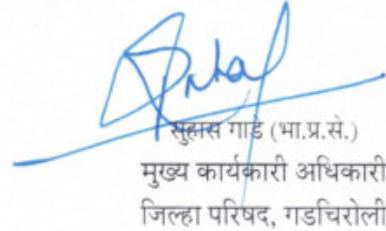 सुहास गाडे (भा.प्र.से.)
मुख्य कार्यकारी अधिकारी
जिल्हा परिषद, गडचिरोली